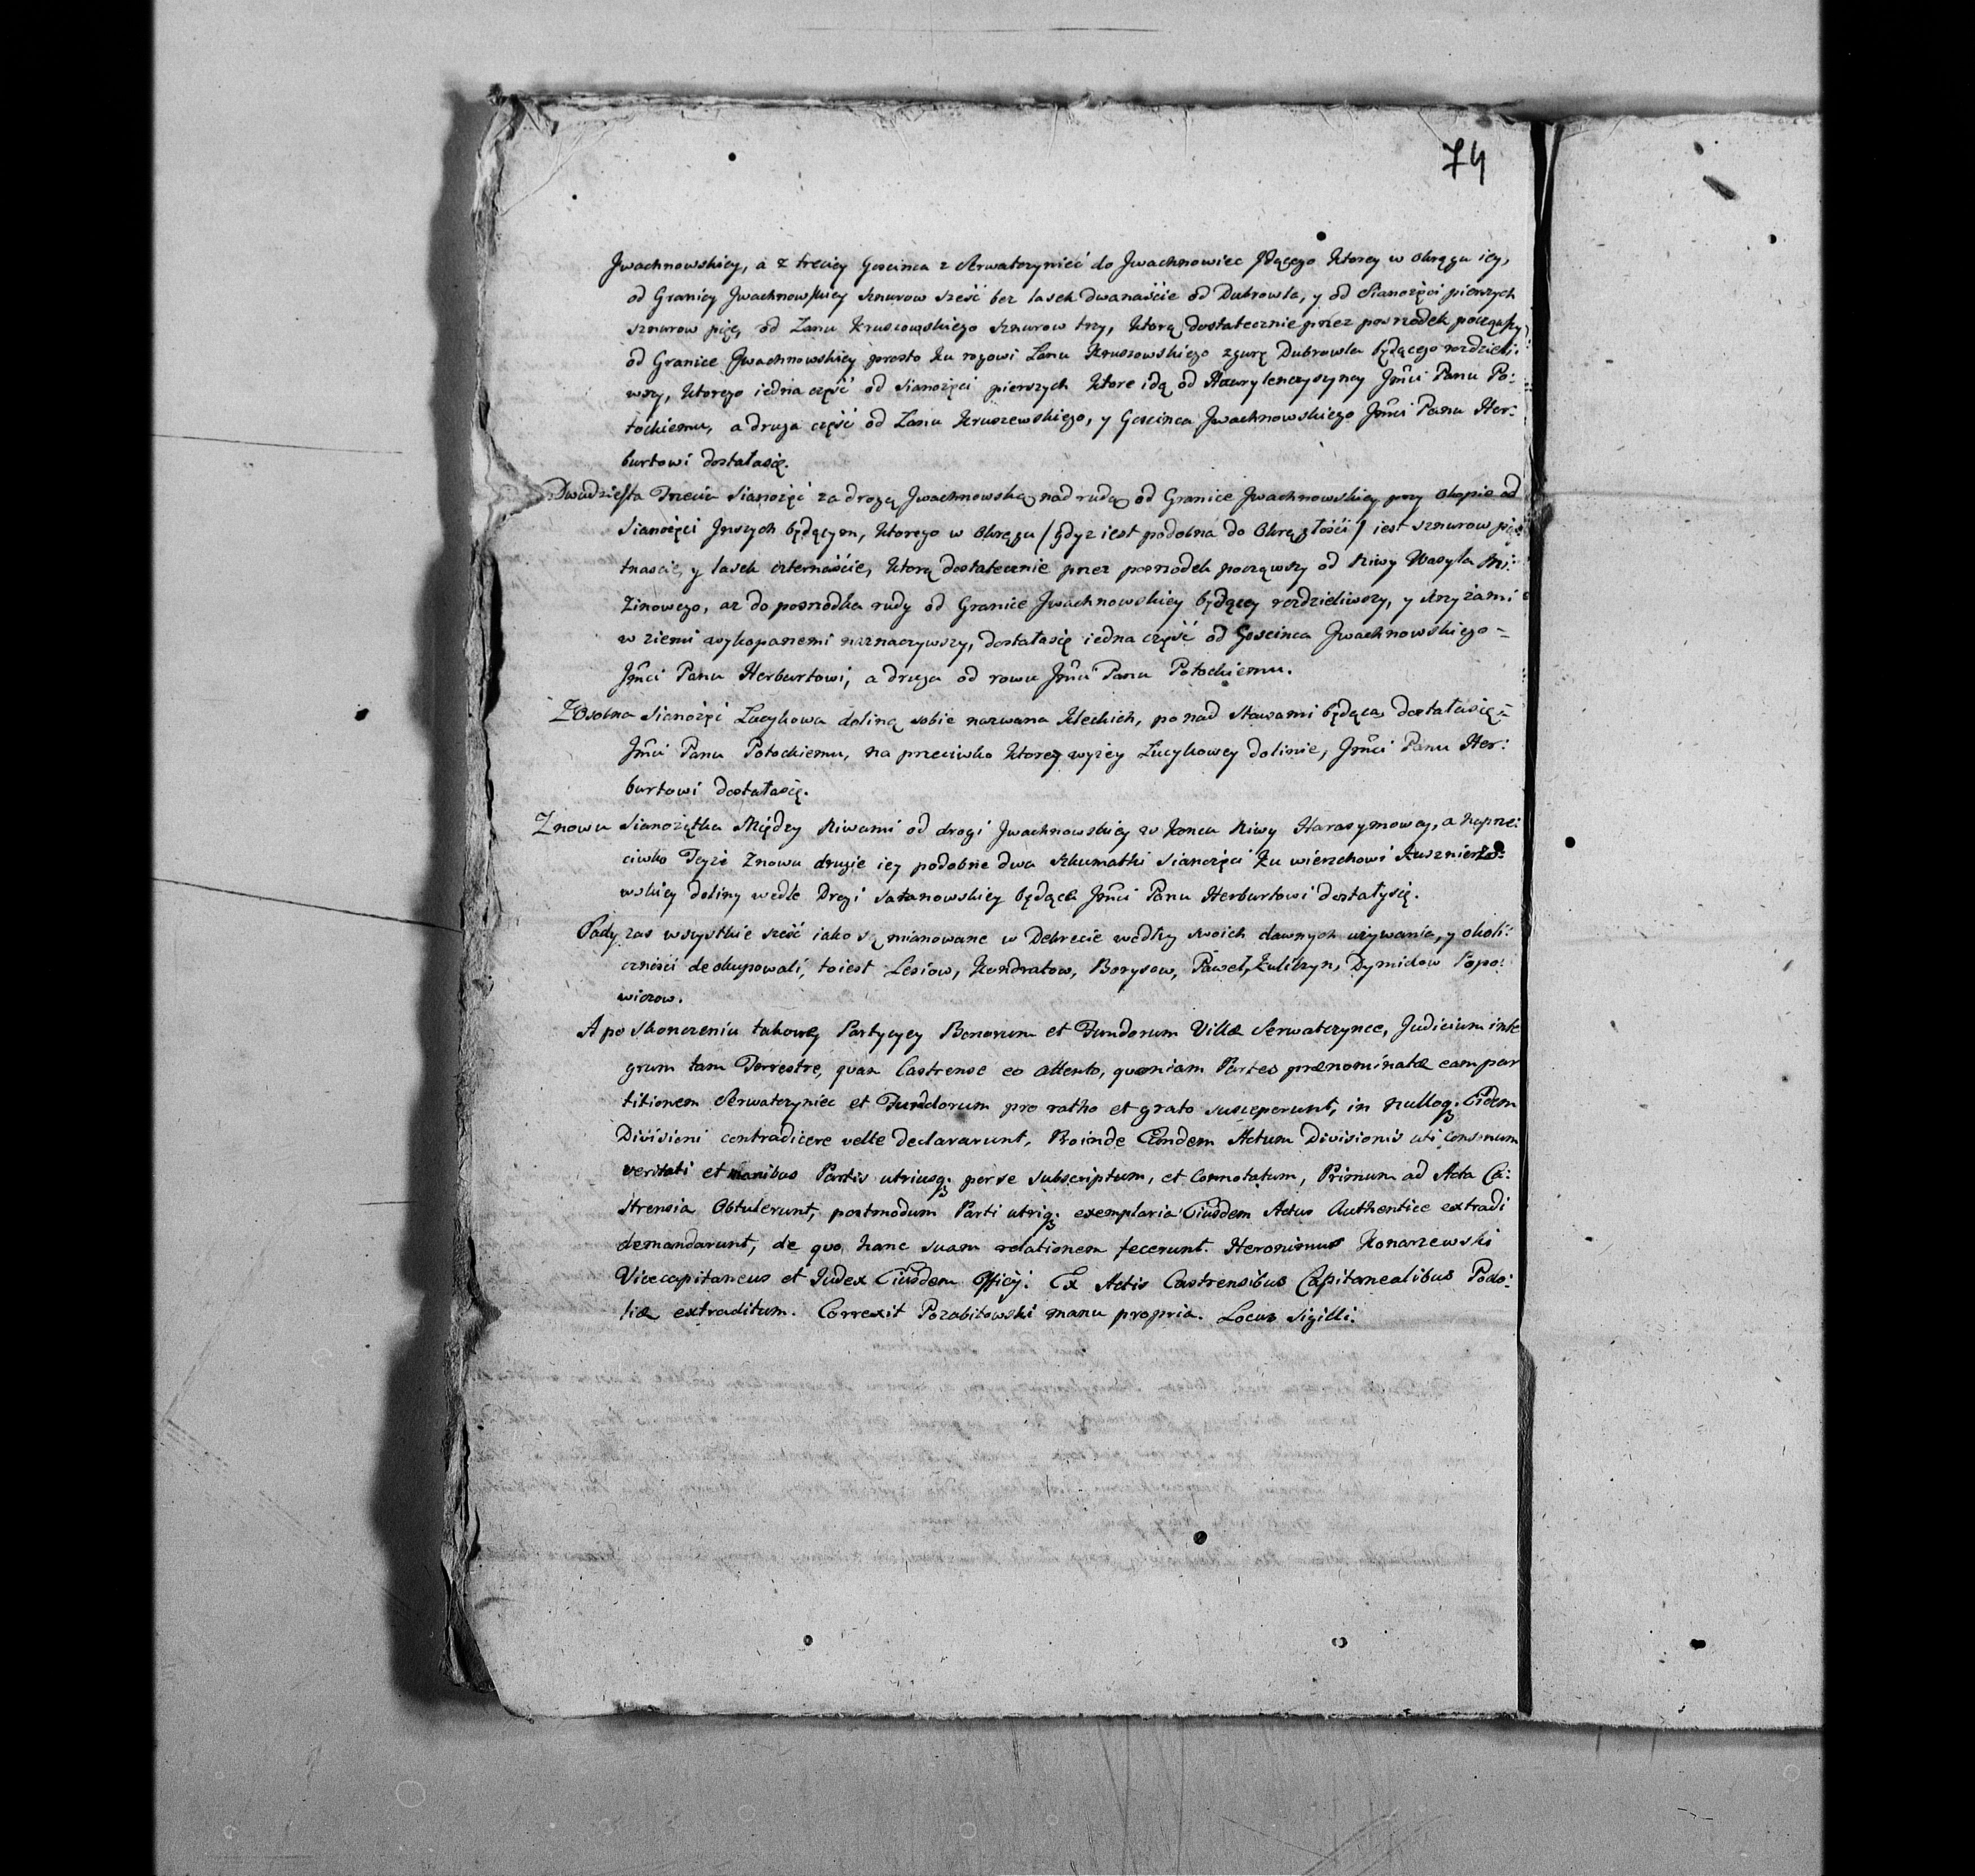 74
Jwachnowskiey, a z treciey Goscinca z Serwatzyniec do Jwachnowiec Jdącego Ktorey w okręgu iey,
od Granicy Jwachnowskiey sznurow sześć bez lasek dwanaście od Dubrowła, y od Sianożęci pierszych
sznurow pięc, od Łanu Kruszowskiego sznurow trzy, Ktorą dostatecznie przez posrzodek począwszy
od Granice Jwachnowskiey prosto ku rogowi Łanu Kruszowskiego zgurę Dubrowła będącego rozdzieli:
wszy, Ktorego iedna część od Sianożęci pierszych Ktore idą od Hawrylenczyzny Jmci Panu Po:
tockiemu, a druga część od Łanu Kruszewskiego, y Goscinca Jwachnowskiego Jmci Panu Her:
burtowi dostałasię.
Dwudziesta Trzecia Sianożęć za drogą Jwachnowską nad rudą od Granice Jwachnowskiey przy okopie od
Sianożęci Jnszych będącym, Ktorego w okręgu / Gdyz iest podobna do Okrągłości / iest sznurow pię
tnascie, y lasek czternaście, Ktorą dostatecznie przez posrzodek począwszy od Niwy Wasyla
Zinowego, az do posrzodka rudy od Granice Jwachnowskiey będącey rozdzieliwszy, y krzyżami
w ziemi wykopanemi naznaczywszy, dostałasię iedna część od Goscinca Jwachnowskiego =
Jmci Panu Herburtowi, a druga od rowu Jmci Panu Potockiemu.
Zosobna Sianożęć Łucykowa dolina sobie nazwana Kleckich, ponad Stawami będąca, dostałasię =
Jmci Panu Potockiemu, na przeciwko Ktorey wyżey Łucykowey dolinie, Jmci Panu Her:
burtowi dostałasię.
Znowu Sianożątka Między Niwami od drogi Jwachnowskiey w koncu Niwy Harasymowey, a naprze:
ciwko Teyże Znowu drugie iey podobne dwa szkumatki Sianożęci ku wierzchowi Kusznierzo:
wskiey doliny wedle Drogi Satanowskiey będące Jmci Panu Herburtowi dostałysię.
Pady zas wszystkie sześć iako są mianowane w Dekrecie wedłuy swoich dawnych używania, y okoli:
czności deokupowali, toiest Lesiow, Kondratow, Borysow, Paweł, Kuliczyn, Dymidow Popo:
wiczow.
A po skonczeniu takowey Partycyey Bonorum et Fundorum Villæ Serwatzynce, Judicium inte
grum tam Terrestre, quam Castrense eo attento, quoniam Partes prænominatæ eam par
titionem Serwatzyniec et Fundorum pro ratho et grato susceperunt, in nulloq3. Eidem
Divisioni contradicere velle declararunt, Proinde Eundem Actum Divisionis uti consonum
veritati et manibus Partis utriusq3. per se subscriptum, et Connotatum, Primum ad Acta Ca:
strensia Obtulerunt, postmodum Parti utriq3. exemplaria Eiusdem Actus Authentice extradi
demandarunt, de quo hanc suam relationem fecerunt. Heronimus Konarzewski
Vicecapitaneus et Judex Eiusdem Officÿ. Ex Actis Castrensibus Capitanealibus Podo:
liæ extraditum. Correxit Pozabitowski manu propria. Locus Sigilli.